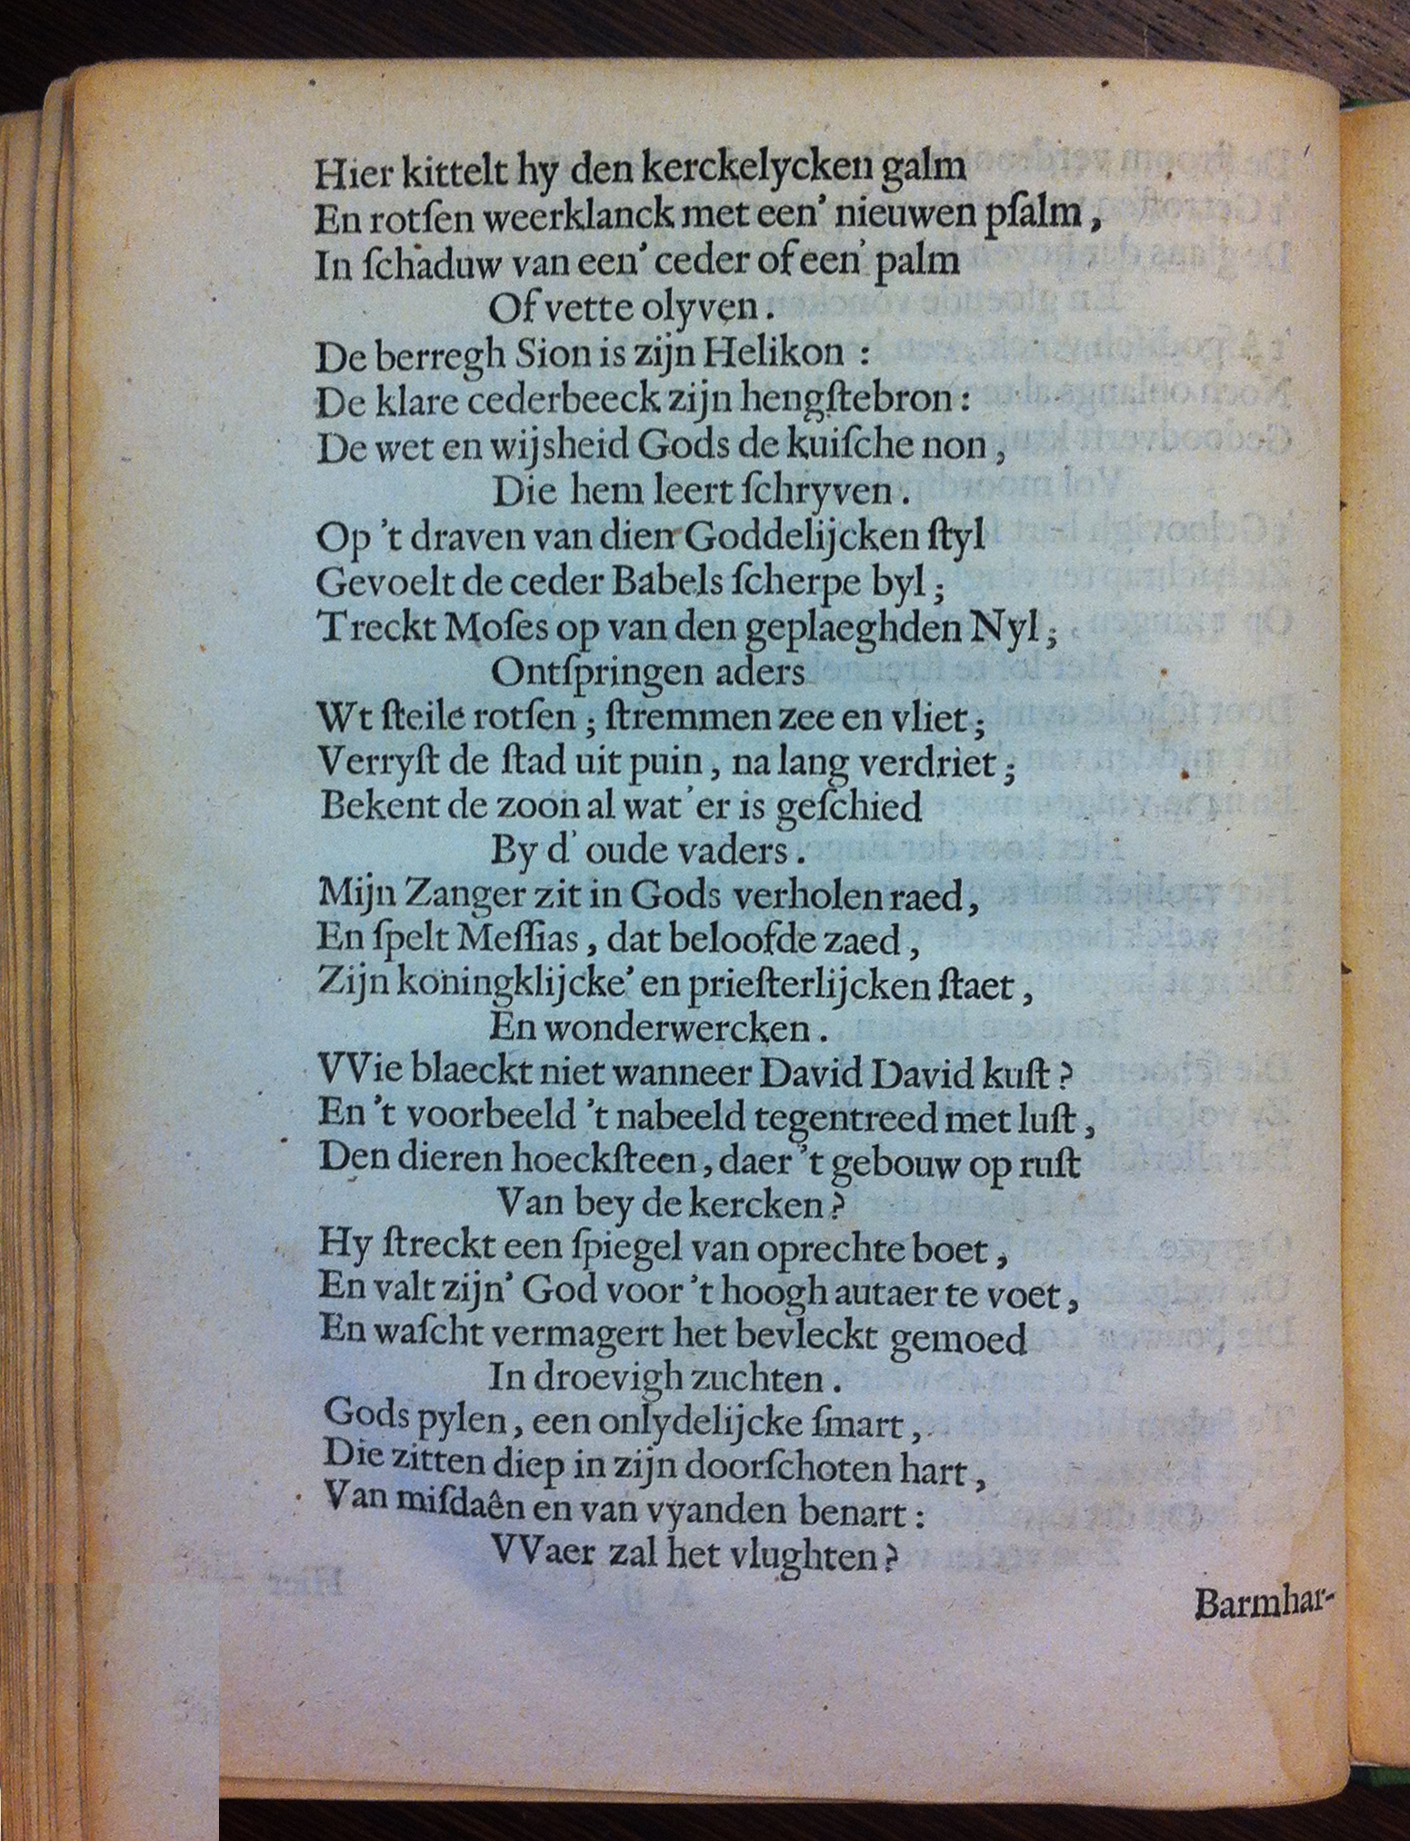 Hier kittelt hy den kerckelycken galm
En rotſen weerklanck met een’ nieuwen pſalm,
In ſchaduw van een’ ceder of een’ palm
Of vette olyven.
De berregh Sion is zijn Helikon :
De klare cederbeeck zijn hengſtebron :
De wet en wijsheid Gods de kuiſche non,
Die hem leert ſchryven.
Op ’t draven van dien Goddelijcken ſtyl
Gevoelt de ceder Babels ſcherpe byl;
Treckt Moſes op van den geplaeghden Nyl;
Ontſpringen aders
Wt ſteile rotſen; ſtremmen zee en vliet;
Verryſt de ſtad uit puin, na lang verdriet;
Bekent de zoon al wat’er is geſchied
By d’ oude vaders.
Mijn Zanger zit in Gods verholen raed,
En ſpelt Meſſias, dat beloofde zaed,
Zijn koningklijcke’ en prieſterlijcken ſtaet,
En wonderwercken.
VVie blaeckt niet wanneer David David kuſt?
En ’t voorbeeld ’t nabeeld tegentreed met luſt,
Den dieren hoeckſteen, daer ’t gebouw op ruſt
Van bey de kercken?
Hy ſtreckt een ſpiegel van oprechte boet,
En valt zijn’ God voor ’t hoogh autaer te voet,
En waſcht vermagert het bevleckt gemoed
In droevigh zuchten.
Gods pylen, een onlydelijcke ſmart,
Die zitten diep in zijn doorſchoten hart,
Van miſdaên en van vyanden benart :
VVaer zal het vlughten?
Barmhar-